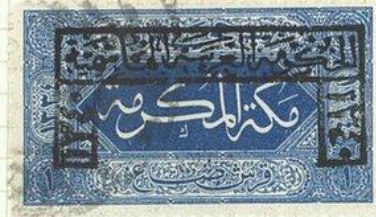 الحكومة العربية الهاشمية
١٣٣٤
مكة المكرمة
١٣٤٠
١ قرش صاغ ١